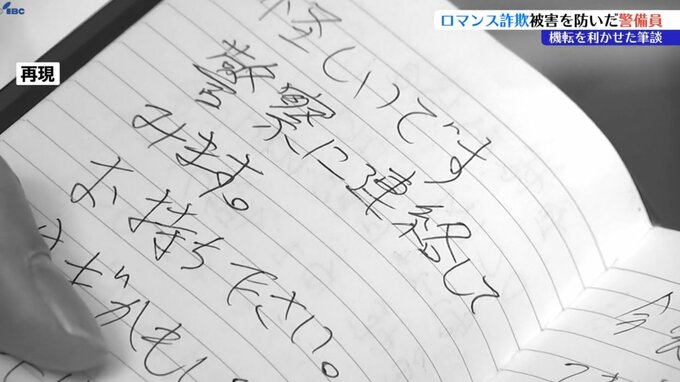 IBC
ロマンス詐欺被害を防いだ警備員
機転を利かせた筆談
再現
怪しいです
警察に連絡して
みます。
お持ち下さい。